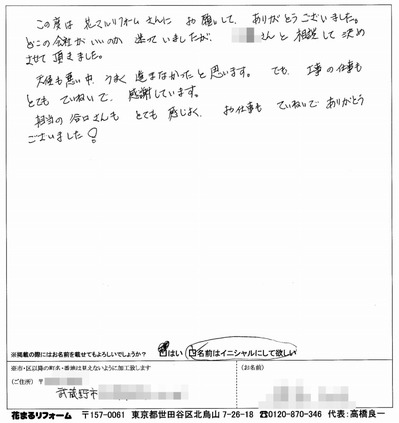 この度は 花マルリフォームさんに お願いして、ありがとうございました。
どこの会社がいいのか 迷っていましたが、 さんと 相談して 決め
させて 頂きました。
天候も悪い中、うまく 進まなかったと思います。 でも、工事の仕事も
とても ていねいで、 感謝しています。
担当の 谷口さんも とても 感じよく、 お仕事も ていねいで ありがとう
ございました!
※掲載の際にはお名前を載せてもよろしいでしょうか? はい 名前はイニシャルにして欲しい
※市・区以降の町名・番地は見えないように加工致します
(ご住所) 〒
(お名前)
武蔵野市
花まるリフォーム 〒157-0061 東京都世田谷区北烏山 7-26-18 ☎0120-870-346 代表:高橋良一